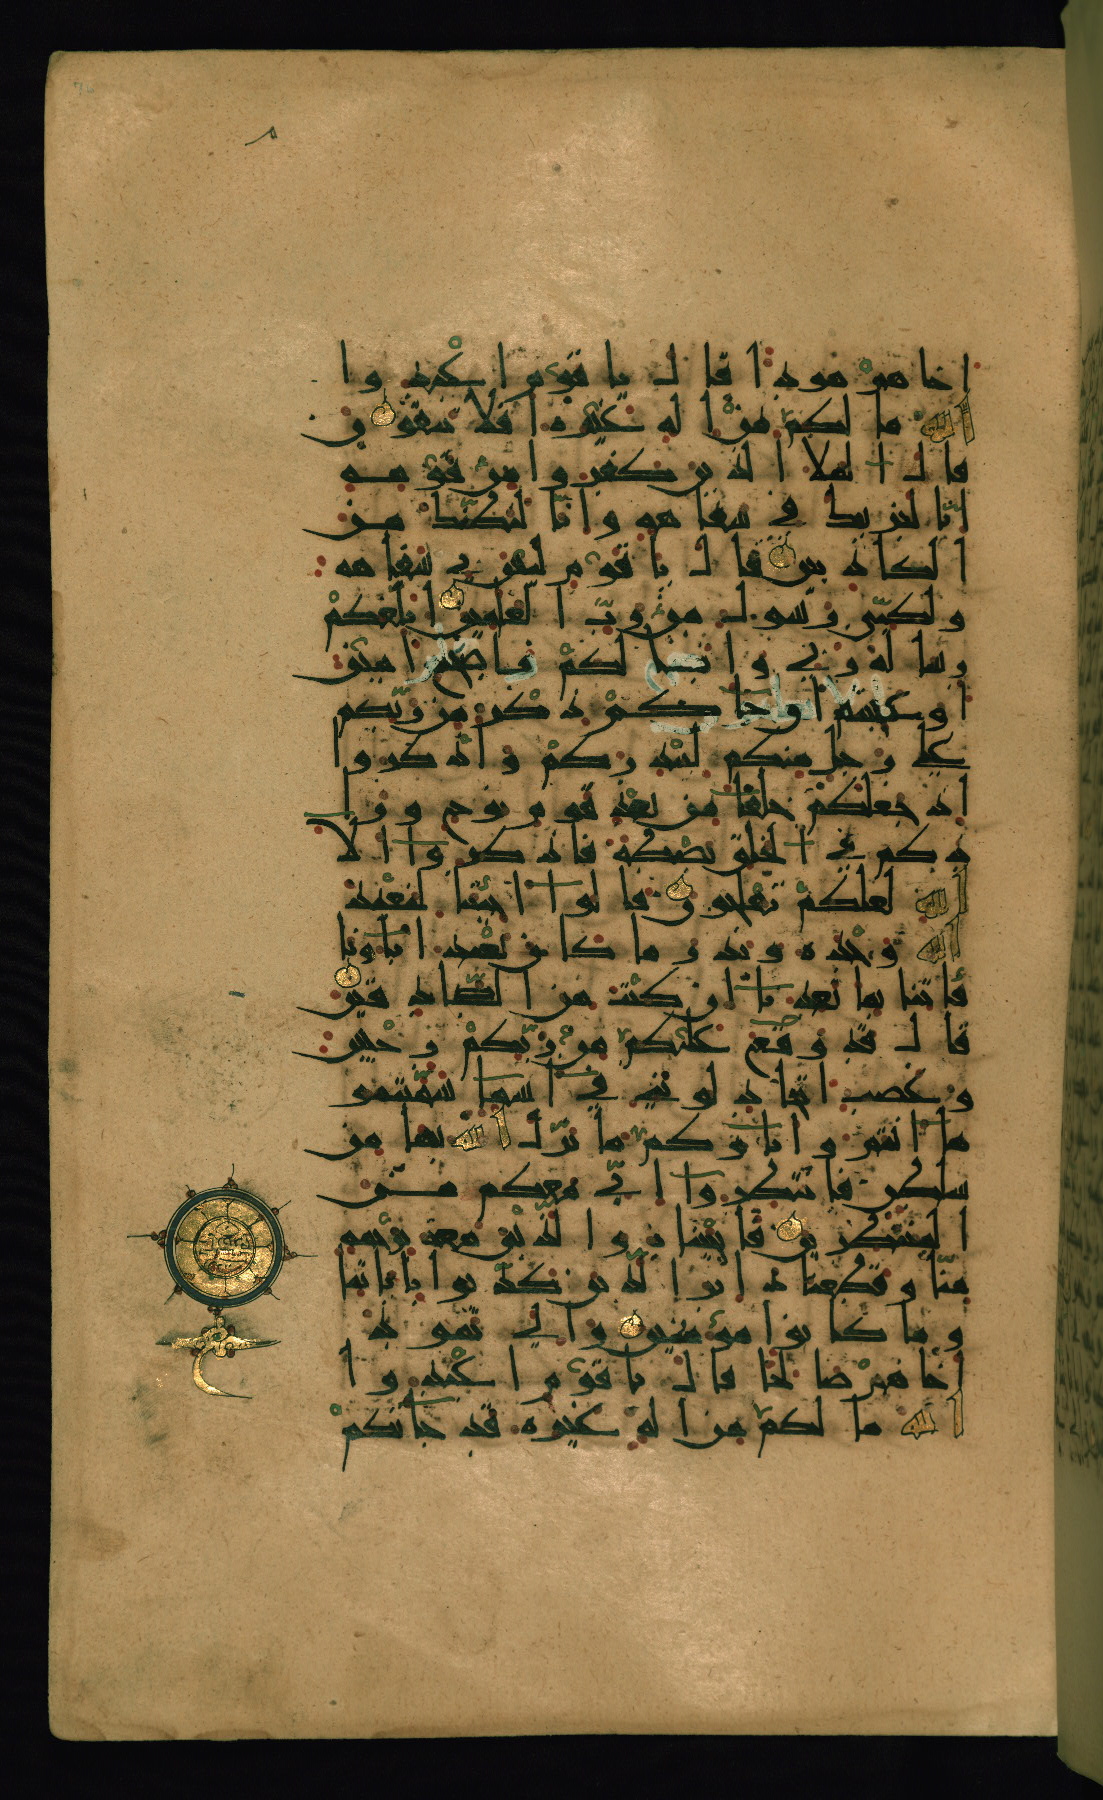 اخاهم هودا قال يا قوم اعبدوا
الله ما لكم من اله غيره افلا تتقون
قال الملا الذين كفروا من قومه
انا لنريك في سفاهه وانا لنظنك من
الكاذبين قال يا قوم ليس بي سفاهه
ولكني رسول من رب العلمين ابلغكم
رسالة ربي وانا لكم ناصح امين
او عجبتم ان جاكم ذكر من ربكم
على رجل منكم لينذركم واذكروا
اذ جعلكم خلفا من بعد قوم نوح وزا
دكم في الخلق بصطه فاذكروا الا
الله لعلكم تفلحون قالوا اجيتنا لنعبد
الله وحده ونذر ما كان يعبد اباونا
فاتنا بما تعدنا ان كنت من الصادقين
قال قد وقع عليكم من ربكم رجس
وغضب اتجادلونني في اسما سميتمو
ها انتم واباوكم ما نزل الله بها من
سلطن فانتظروا اني معكم من
المنتظرين فانجيناه والذين معه برحمه
منا وقطعنا دابر الذين كذبوا باياتنا
وما كانوا مومنين والى ثمود
اخاهم صالحا قال يا قوم اعبدوا
الله ما لكم من اله غيره قد جاتكم